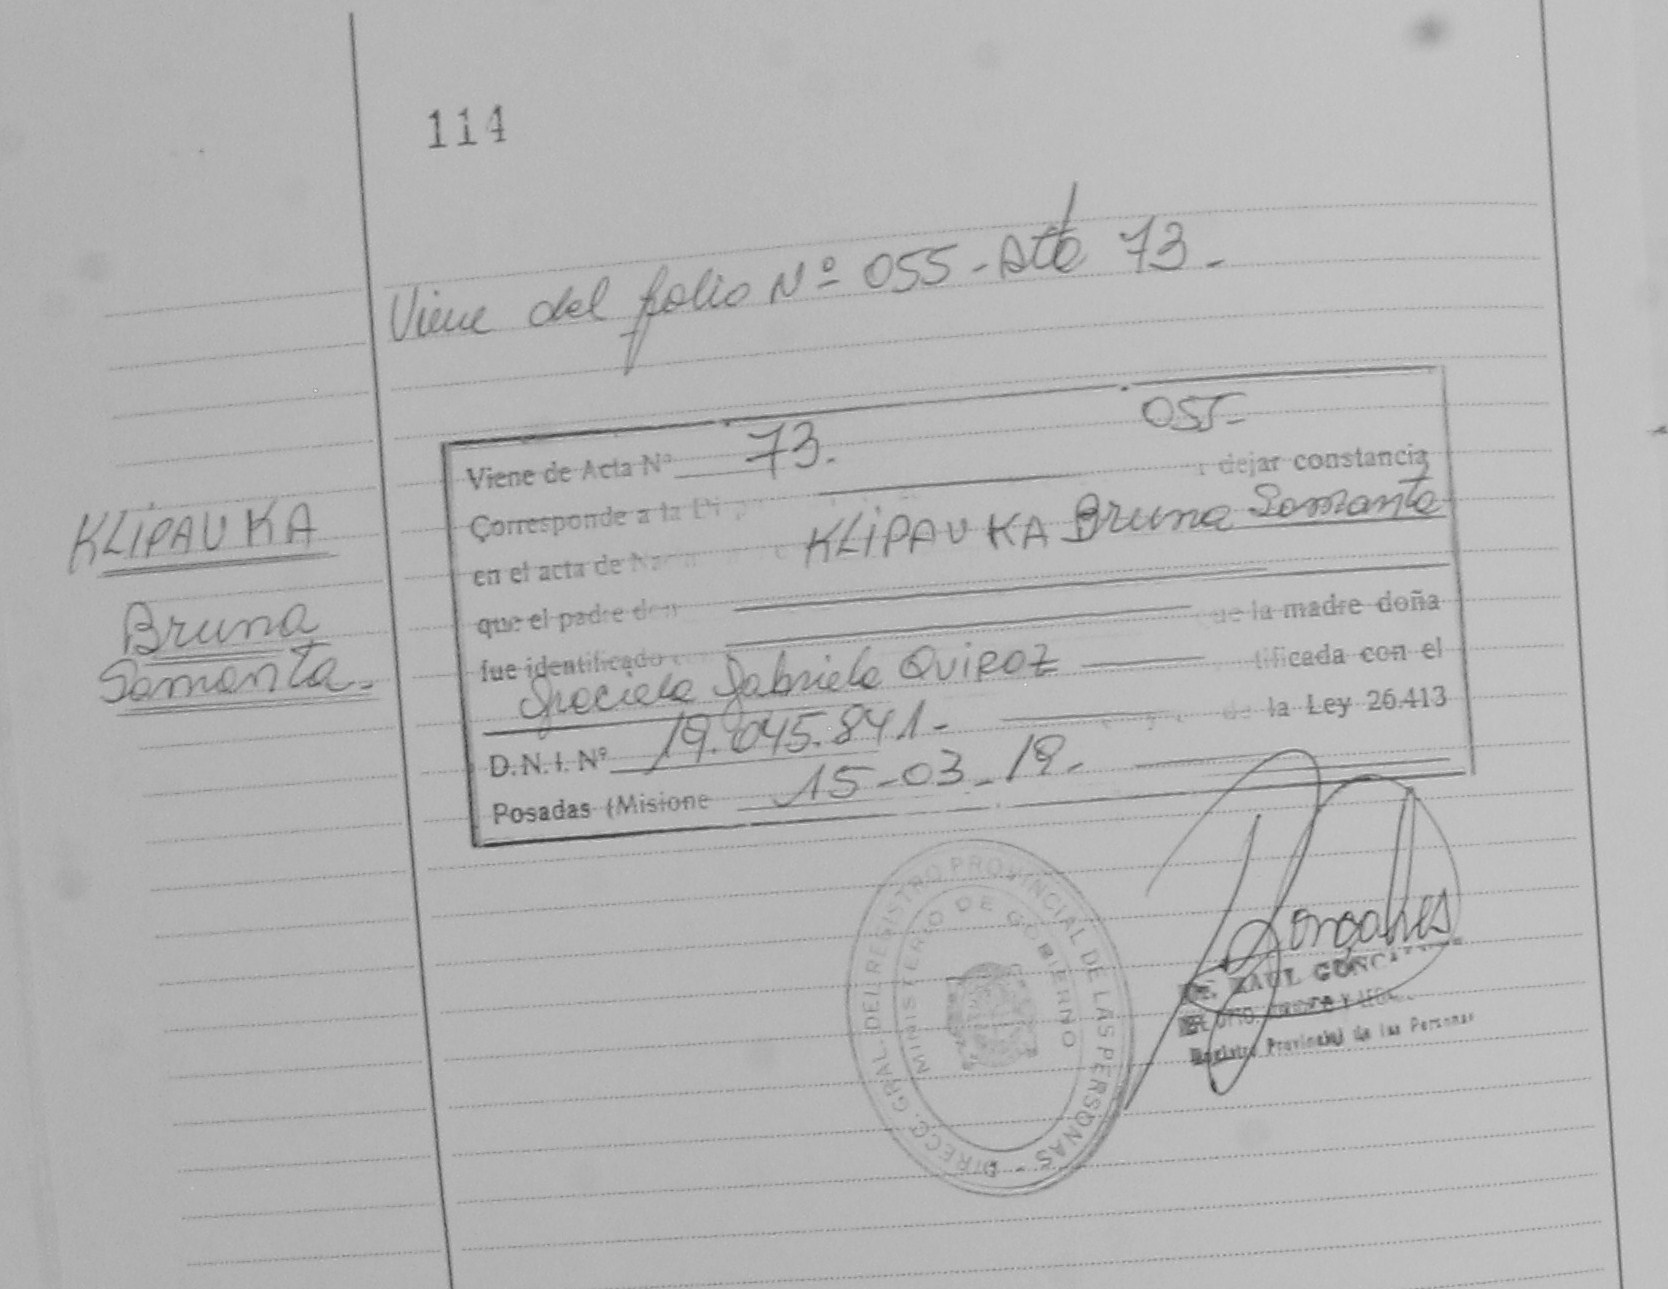 114
Viene del folio Nº 055 - Acta 73.-
KLIPAUKA
Bruna
Samanta.-
Viene de Acta Nº 73. 055-
Corresponde a la dejar constancia
en el acta de KLIPAUKA Bruna Samanta
que el padre don
fue identificado de la madre doña
Graciela Gabriela QUIROZ tificada con el
D.N.I. Nº 19.045.841.- de la Ley 26.413
Posadas (Misione 15-03-19.-
DIRECC. GRAL. DEL REGISTRO PROVINCIAL DE LAS PERSONAS -
MINISTERIO DE GOBIERNO
RAUL
Registro Provincial de las Personas